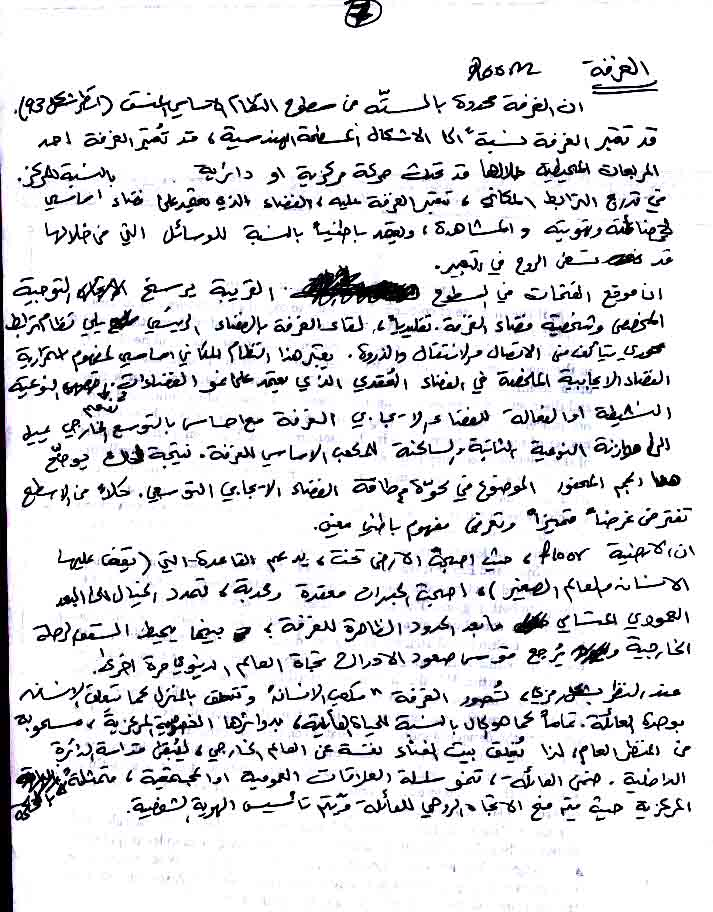 7
الغرفة Room
ان الغرفة محدودة بالستّه من سطوح النظام الاساسي المنسق (انظر شكل 93).
قد تعتبر الغرفة نسبةً الى الاشكال المسطحة الهندسية، قد تُعتبر الغرفة احد
المربعات المحيطية خلالها قد تحدث حركة مركزية او دائرية بالنسبة للمركز.
في تدرج الترابط المكاني، تعتبر الغرفة عليه، الفضاء الذي يعتمد على فضاء اساسي
وتهويته والمشاهدة، ويعتمد باطنياً بالنسبة للوسائل التي من خلالها
قد الروح في تعبير.
ان موقع الفتحات في السطوح الغريبة يرسخ التوجية
وشخصية فضاء الغرفة. تقليدياً، لقاء الغرفة بالفضاء الرئيسي يلي نظام ترابط
محوري يتألف من الاتصال والانتقال والذروة. يعتبر هذا النظام المكاني اساسي لمفهوم استمرارية
الفضاء الايجابية الملخصة في الفضاء العُقدي الذي يعتمد على نمو الفضاءات. النوعية
النشيطة او الفعالة للفضاء الايجابي الغرفة مع احساس بالتوسع الخارجي يميل
الى موازنة النوعية الثابتة والساكنة للمكعب الاساسي للغرفة. نتيجة لذلك يوضّح
الحجم المحصور الموضوع في طاقة الفضاء الايجابي التوسعي. كلاً من الاسطح
تفترض غرضاً متميزاً وتعرض مفهوم باطني معين.
ان الارضية floor، حيث اصبحت الارض تحت، يدعم القاعدة التي (يقف عليها
الانسان والعالم الصغير)، اصبحت الجدران معتمدة ومحدبة، لتمدد الخيال الى البعد
العمودي ما بعد الحدود الظاهرة للغرفة، بينما يحيط السقف الرحلة
الخارجية و يُرجع قوس صعود الادراك تجاة العالم الدنيوي مرة اخرى.
عند النظر بشكل مركزي، تُصور الغرفة "مكعب الانسان" وتتعلق بالمنزل كما تتعلق الانسان
بوحدة العائلة. تماماً كما هو الحال بالنسبة للحياة العائلية، بدوائرها المركزية، مسحوبة
من المنظر العام، لذا يُغلق بيت الفناء نفسه عن العالم الخارجي، ليُبقي قداسة الدائرة
الداخلية. ضمن العائلة، تنمو سلسلة العلاقات العمومية او المجتمعية، متمثلة
المركزية حيث يتم منح الاتجاه الروحي للعائلة ويتم تأسيس الهوية الشخصية.